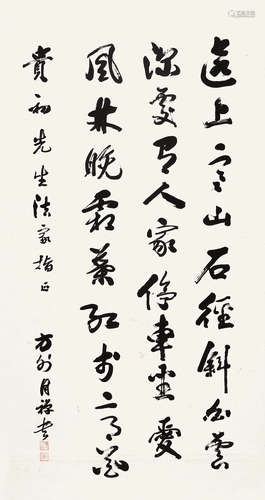 遠上寒山石徑斜白雲
深處有人家停車坐愛
風林晚霜葉紅於二月花
貴初先生法家指正
方外月禪書